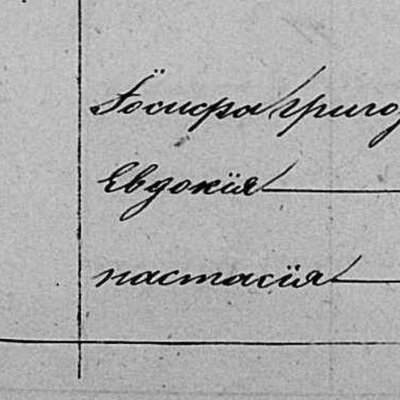 Іосифа Григо
Евдокія
настасія